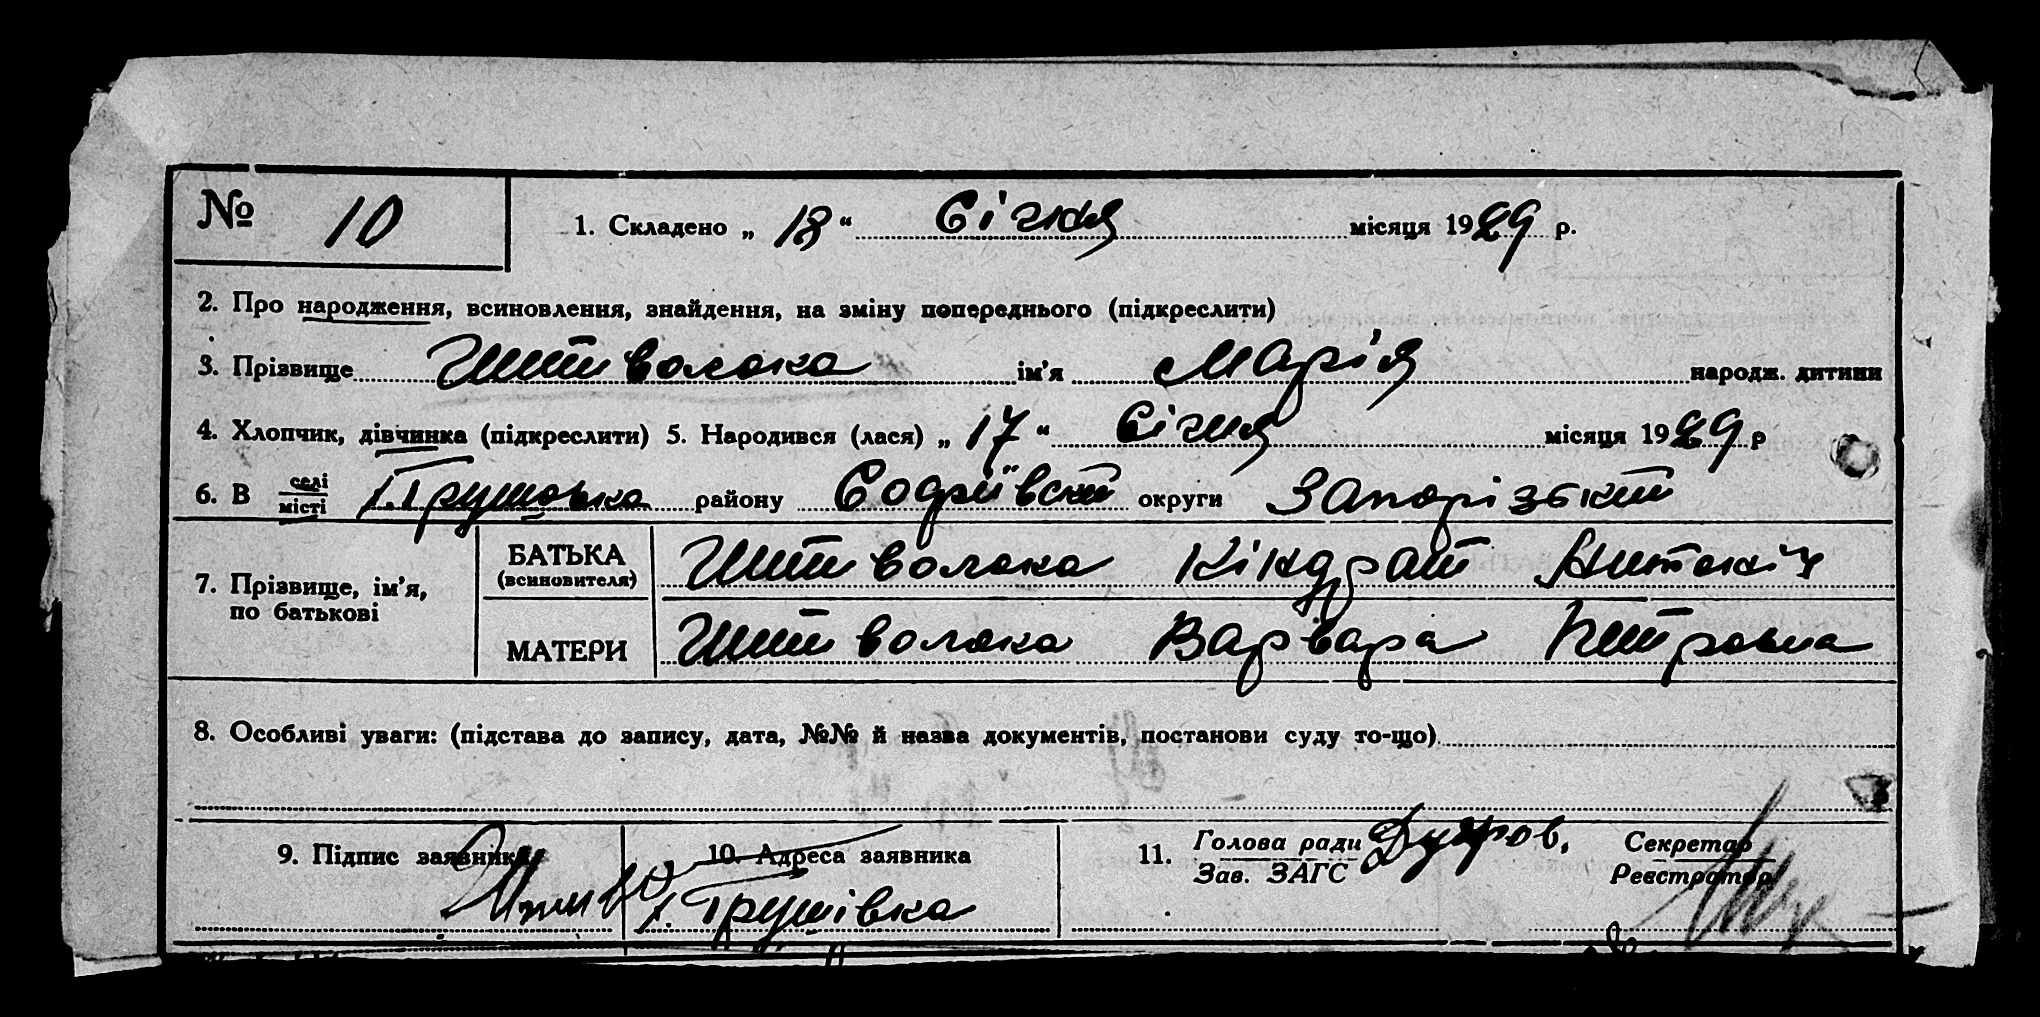 № 10
1. Складено „ 18 “ Січня місяця 1929 р.
2. Про народження, всиновлення, знайдення, на зміну попереднього (підкреслити)
3. Прізвище Шитиволока ім'я Марія народж. дитини
4. Хлопчик, дівчинка (підкреслити) 5. Народився (лася) „ 17 “ Січня місяця 1929 р
6. В селі місті Грушовка району Софіївский округи Запорізький
7. Прізвище, ім'я, по батькові
БАТЬКА (всиновителя) Шитиволока Кіндрат Антоніч
МАТЕРИ Шитиволока Варвара Петровна
8. Особливі уваги: (підстава до запису, дата, №№ й назва документів, постанови суду то-що)
9. Підпис заявника
10. Адреса заявника
Грушівка
11. Голова ради
Зав. ЗАГС
Секретар
Реєстратор